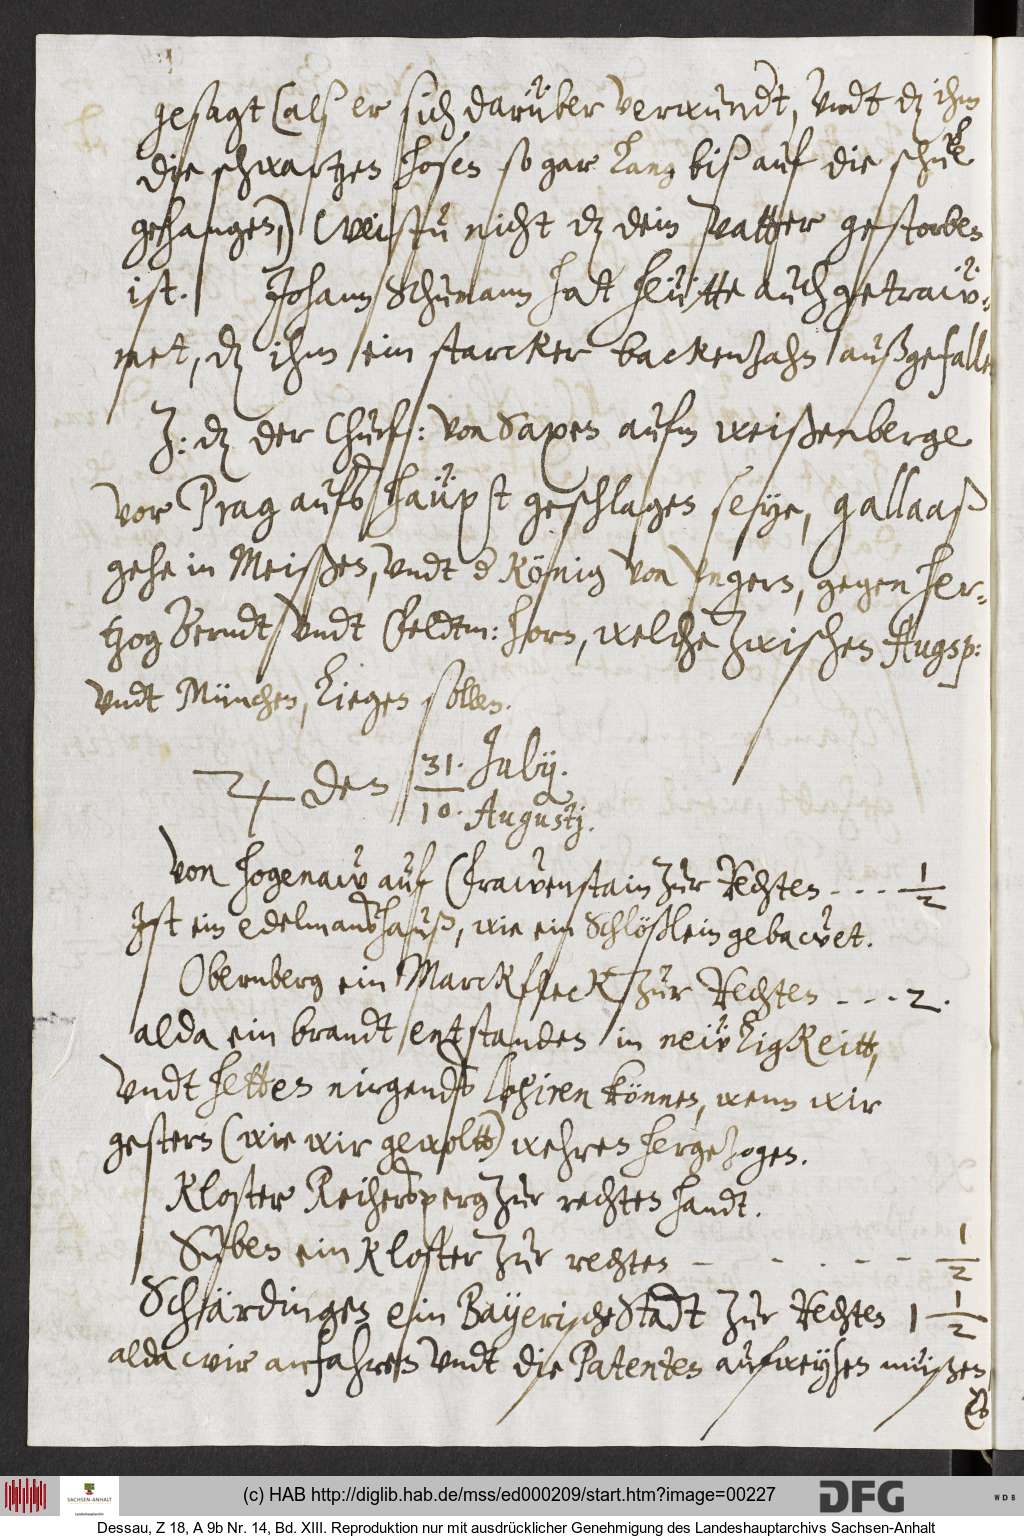 gesagt (alß er sich darüber verwundt, vndt dz ihm
die schwartzen hosen so gar lang biß auf die schue
gehangen,) weistu nicht dz dein vatter gestorben
ist. Johann Schumann hat heütte auch getraiw-
met, dz ihm ein starcker backenzahn außgefallen
Z: dz der Churf: von Saxen aufm weißenberge
vor Prag aufs haüpt geschlagen seye, gallaaß
gehe in Meißen, vndt d König von vngern, gegen her-
tzog Berndt vndt Feldtm: horn, welche zwischen Augsp:
vndt München, liegen sollen.
♃ den 31. July.
10. Augustj.
Von hogenaw auf Frawenstain zur Rechten - - - 1/2
Ist ein edelmanßhauß, wie ein Schlößlein gebawet.
Obernberg ein Marckfleck zur Rechten - - - 2.
alda ein brandt entstanden in neiwligkeitt,
vndt hetten nirgendß logiren können, wenn wir
gestern (wie wir gewoltt) wehren hergezogen.
Kloster Reichersperg zur rechten handt.
Suben ein Kloster zur rechten - - - - - 1/2
Schärdingen ein Bayerische Stadt zur Rechten 1 1/2
alda wir anfahren vndt die Patenten aufweysen müßen
Es
(c) HAB http://diglib.hab.de/mss/ed000209/start.htm?image=00227
SACHSEN-ANHALT
DFG
WDB
Dessau, Z 18, A 9b Nr. 14, Bd. XIII. Reproduktion nur mit ausdrücklicher Genehmigung des Landeshauptarchivs Sachsen-Anhalt